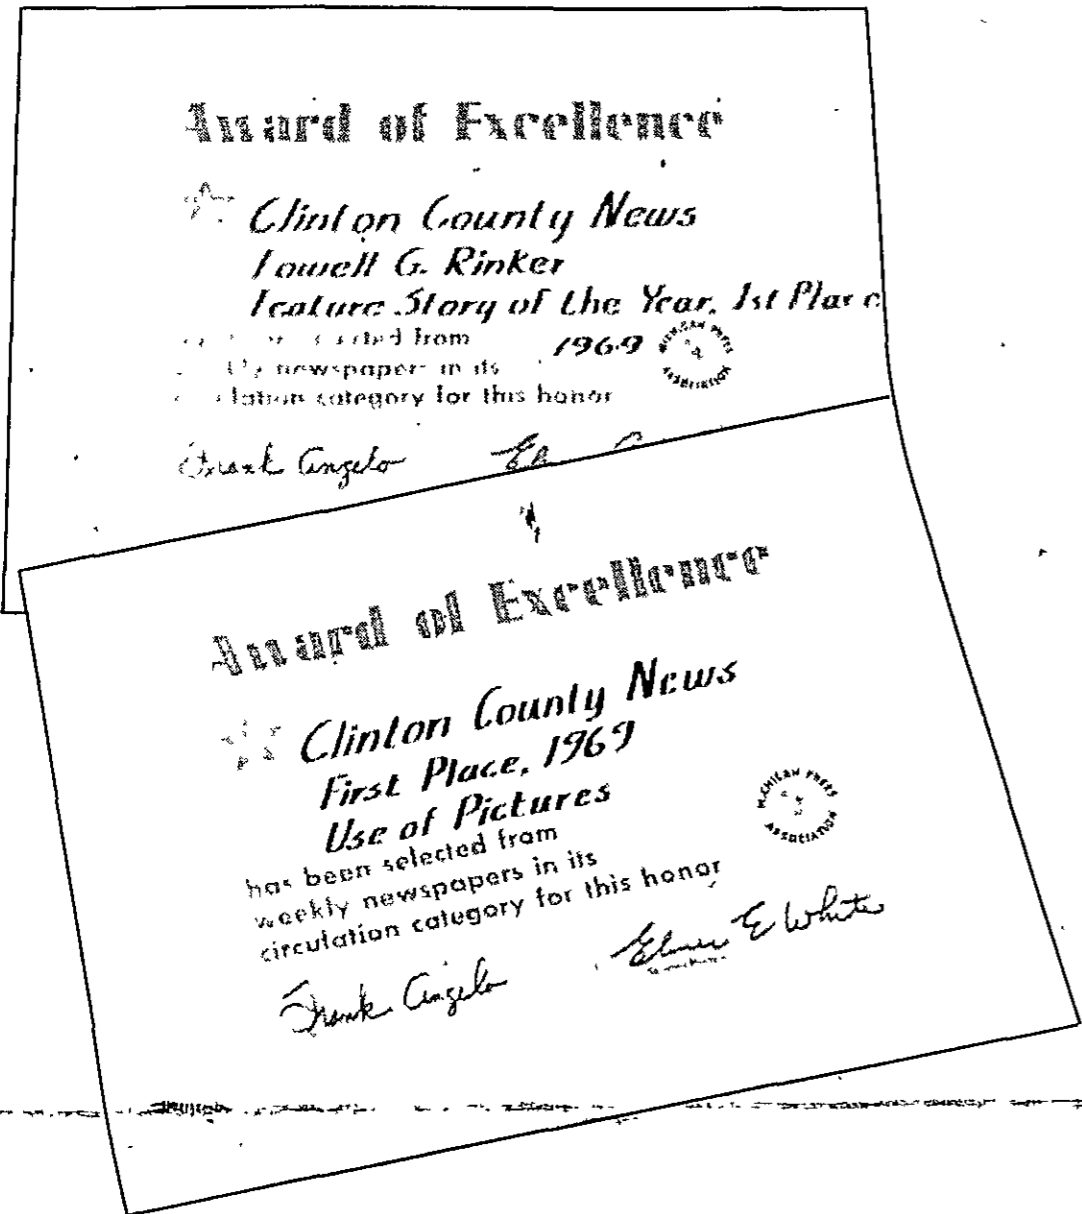 Award of Excellence
Clinton County News
Lowell G. Rinker
Feature Story of the Year, 1st Place
from
1969
newspapers in its
category for this honor
MICHIGAN PRESS ASSOCIATION
Frank Angelo
Award of Excellence
Clinton County News
First Place, 1969
Use of Pictures
has been selected from
weekly newspapers in its
circulation category for this honor
MICHIGAN PRESS ASSOCIATION
Frank Angelo
Elmer E White